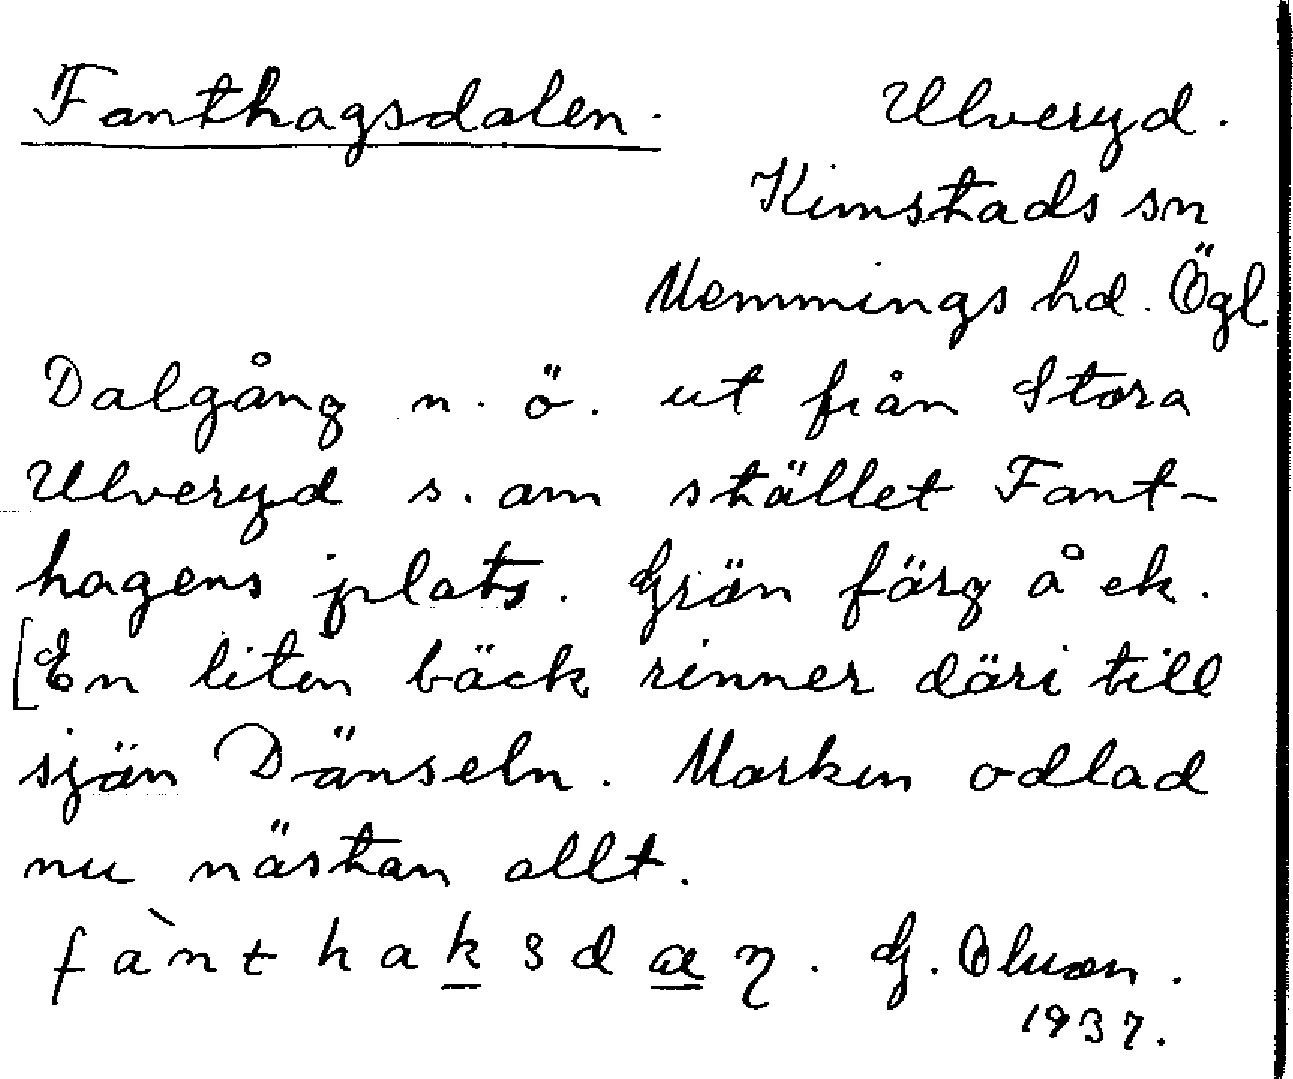 Fanthagsdalen. Ulveryd.
Kimstads sn
Memmings hd. Ögl
Dalgång n. ö. ut från Stora
Ulveryd s. om stället Fant-
hagens plats. Grön färg å ek.
[En liten bäck rinner däri till
sjön Dänseln. Marken odlad
nu nästan allt.
fànthaksdaη. G. Olson.
1937.